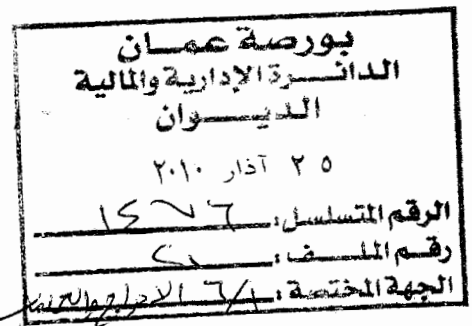 بورصة عمان
الدائرة الإدارية والمالية
الديوان
٢٥ آذار ٢٠١٠
الرقم المتسلسل:
رقم الملف:
الجهة المختصة: ٦/١